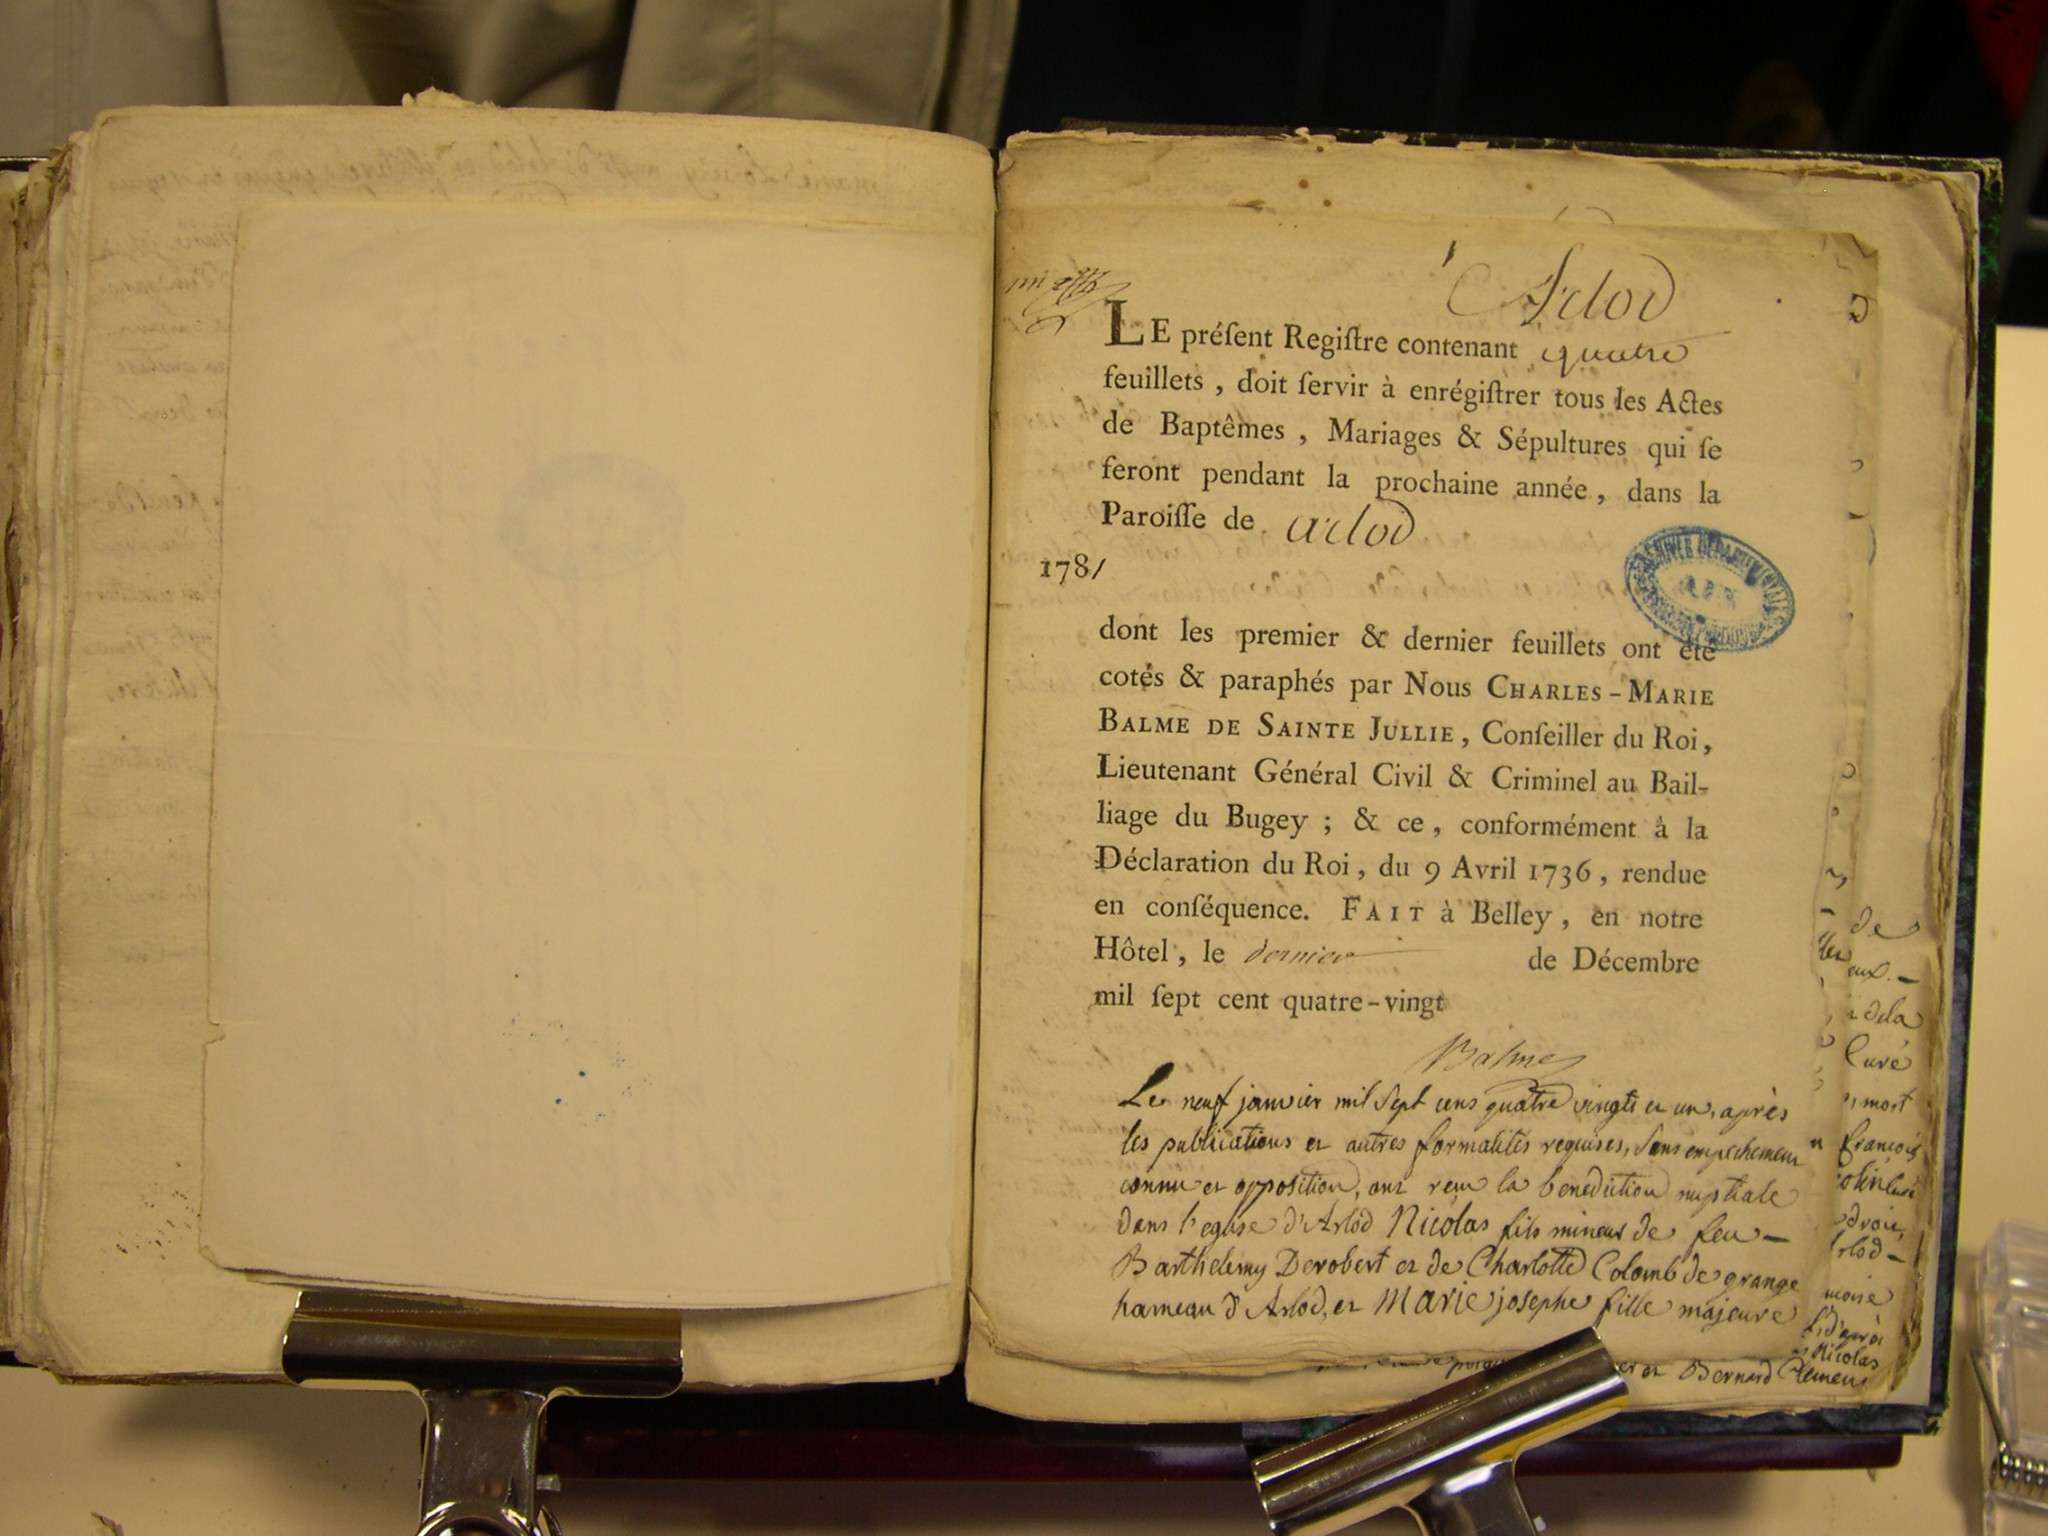 Arlod
LE préſent Regiſtre contenant quatre
feuillets, doit ſervir à enrégiſtrer tous les Actes
de Baptêmes, Mariages & Sépultures qui ſe
feront pendant la prochaine année, dans la
Paroiſſe de arlod
1781
dont les premier & dernier feuillets ont été
cotés & paraphés par Nous CHARLES-MARIE
BALME DE SAINTE JULLIE, Conſeiller du Roi,
Lieutenant Général Civil & Criminel au Bail-
liage du Bugey; & ce, conformément à la
Déclaration du Roi, du 9 Avril 1736, rendue
en conſéquence. FAIT à Belley, en notre
Hôtel, le dernier de Décembre
mil ſept cent quatre-vingt
Balme
Le neuf janvier mil Sept cens quatre vingts et un, après
les publications et autres formalités requises, Sans empechement
connu et opposition, ont reçu la benediction nuptiale
dans l'eglise d'Arlod Nicolas fils mineur de feu –
Barthelemy Derobert et de Charlotte Colomb de grange
hameau d'Arlod, et Marie josephe fille majeure
de
eux. –
dela
Curé
, mort
françois
droit,
moise
d'après
Nicolas
er et Bernard Clemens